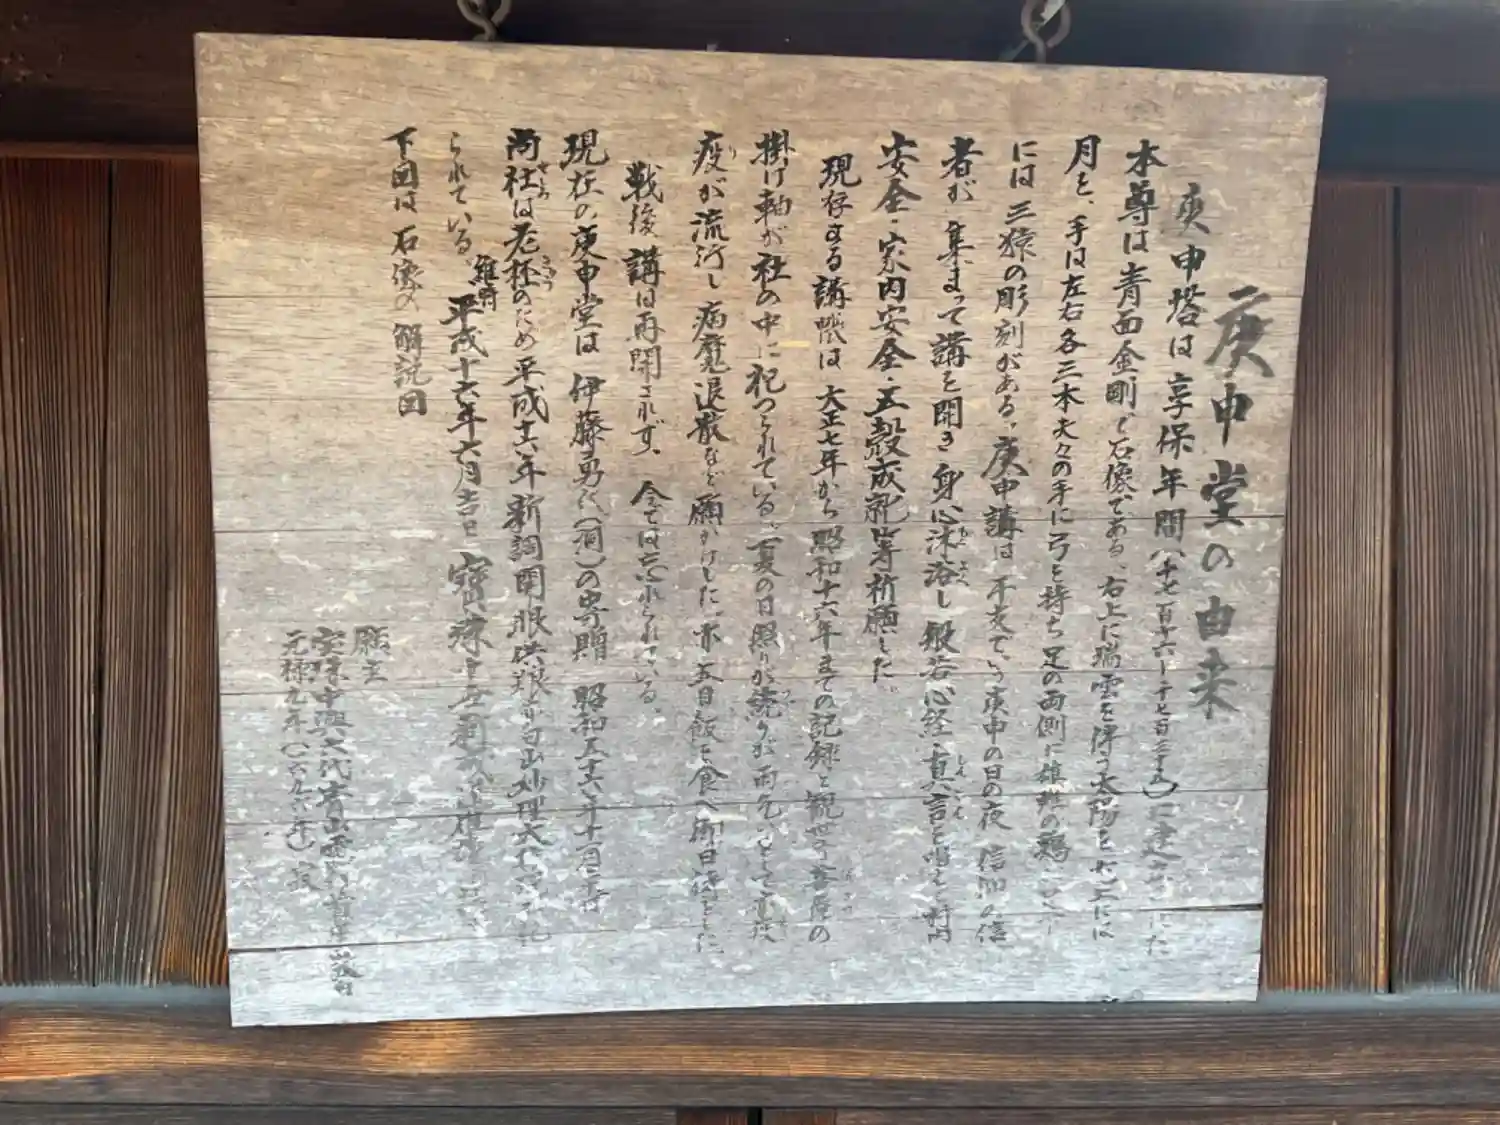 庚申堂の由来
庚申塔は享保年間(一七一六～一七三五)に建
本尊は青面金剛で石像である。右上に瑞雲を伴う太陽を左上には
月を、手は左右各三本夫々の手に弓を持ち足の両側に雄雌の鶏
には三猿の彫刻がある。庚申講は不定で、庚申の日の夜 信仰の信
者が、集まって講を開き身心沐浴し般若心経・真言を唱え村内
安全・家内安全・五穀成就等祈願した。
現存する講帳は大正七年から昭和十六年までの記録と観世音菩薩の
掛け軸が社の中に祀つられている。夏の日照りが続くが雨乞
疫が流行し病魔退散など願かけした。亦五目飯を食べ御日待をした
戦後講は再開されず、今では忘れられている。
現在の庚申堂は 伊藤勇氏(洞)の寄贈 昭和五十六年十一月
尚社は老朽のため平成十六年新調開眼供 白山妙理大
られている。維時
平成十六年六月吉日 寳珠
下図は石像の解説図
願主
宝珠中興
元禄九年(一六九六年)